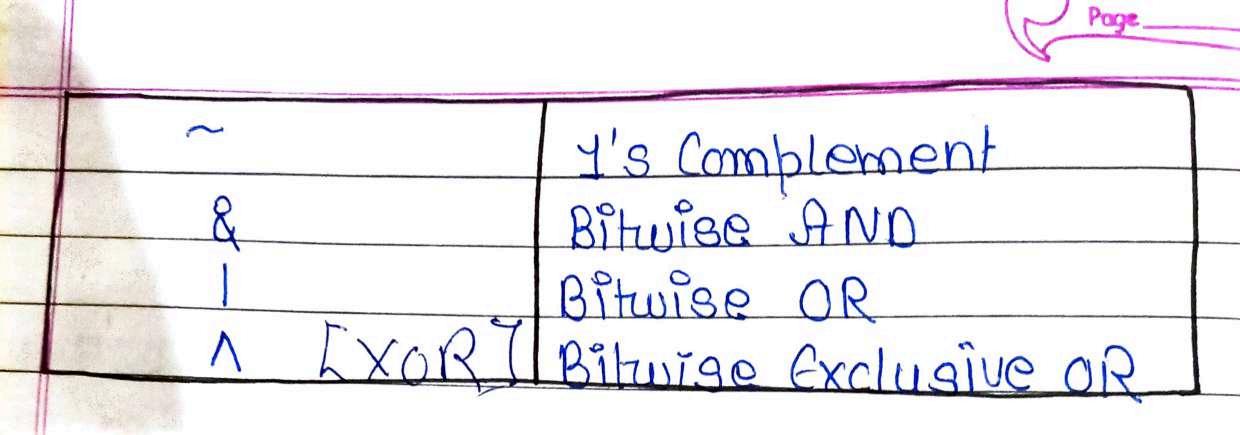 Page
~ 1's Complement
& Bitwise AND
| Bitwise OR
^ [XOR] Bitwise Exclusive OR